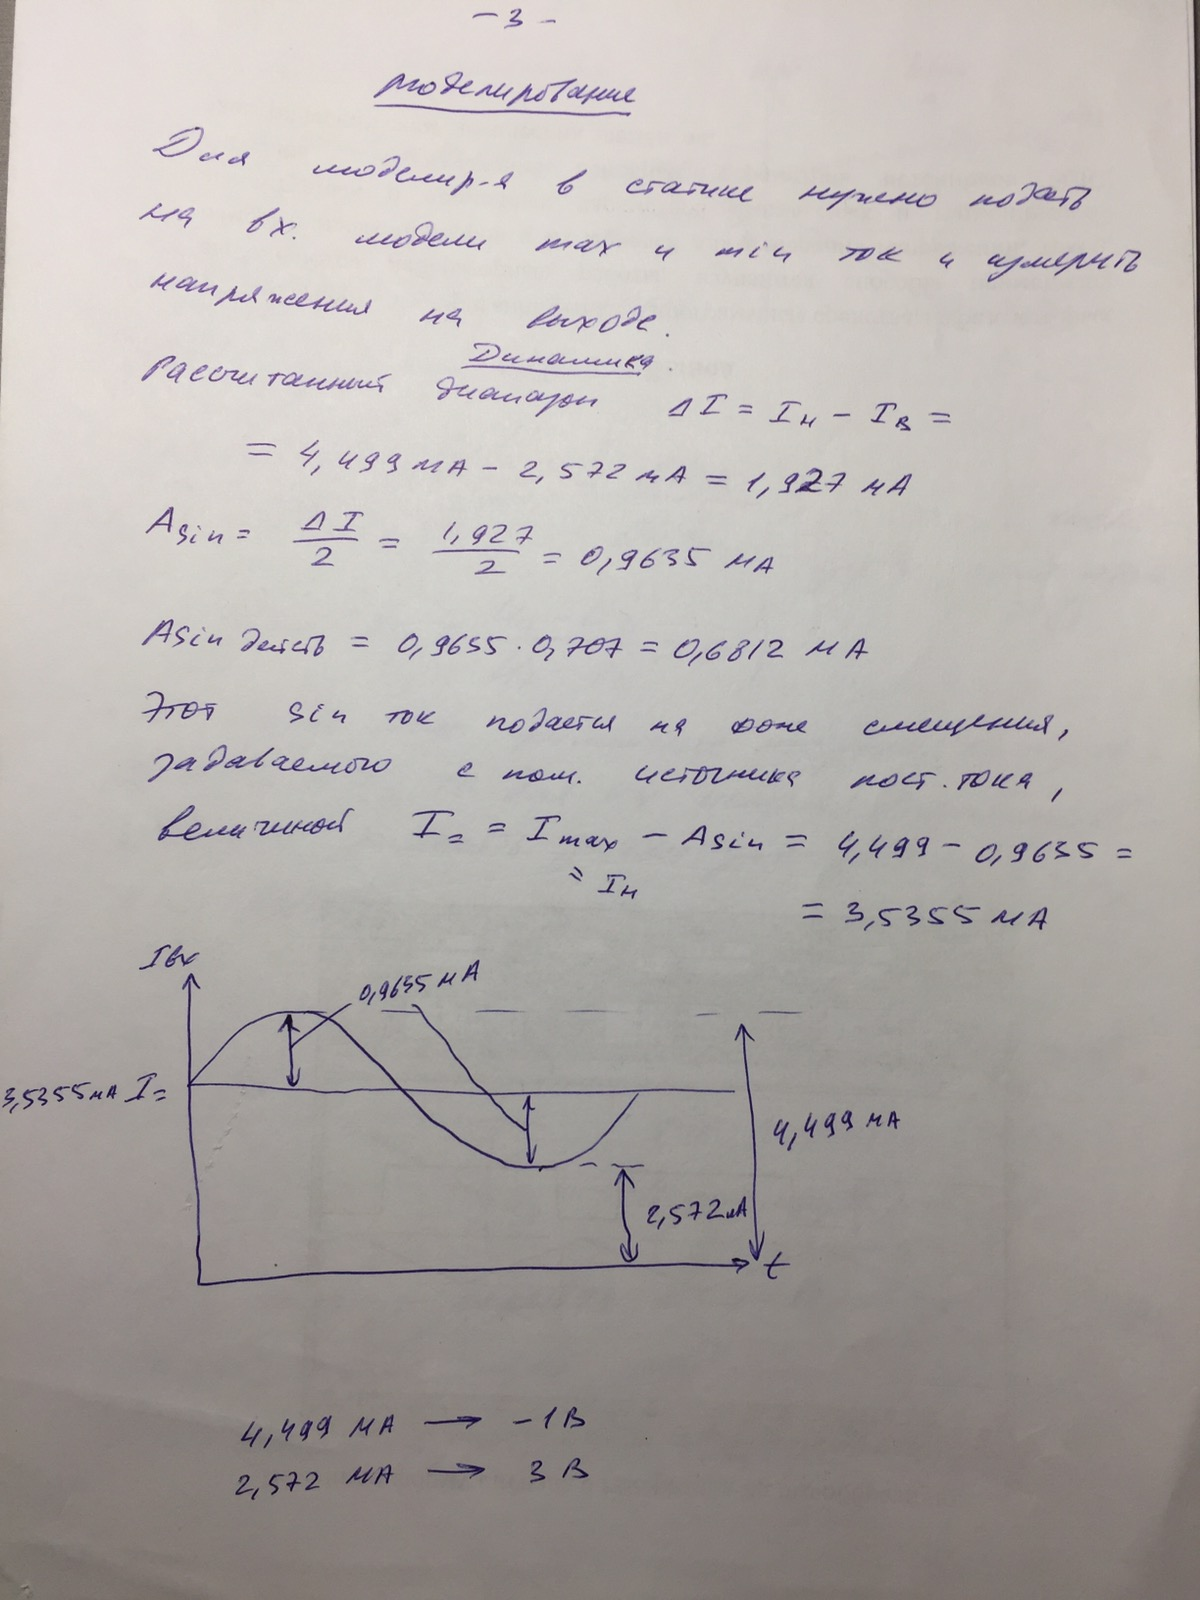 – 3 –
Моделирование
Для моделир-я в статике нужно подать
на вх. модели max и min ток и измерить
напряжения на выходе.
Динамика.
Рассчитанный диапазон ΔI = Iн – Iв =
= 4,499 мА – 2,572 мА = 1,927 мА
Asin = ΔI/2 = 1,927/2 = 0,9635 мА
Asin действ = 0,9635 · 0,707 = 0,6812 мА
Этот sin ток подается на фоне смещения,
задаваемого с пом. источника пост. тока,
величиной I= = Imax – Asin = 4,499 – 0,9635 =
= Iн
= 3,5355 мА
Iвх
0,9635 мА
3,5355 мА I=
4,499 мА
2,572 мА
t
4,499 мА → –1 В
2,572 мА → 3 В